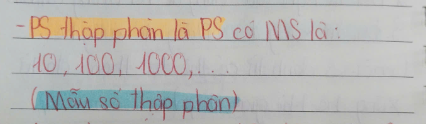 - PS thập phân là PS có MS là:
10, 100, 1000,...
(Mẫu số thập phân)